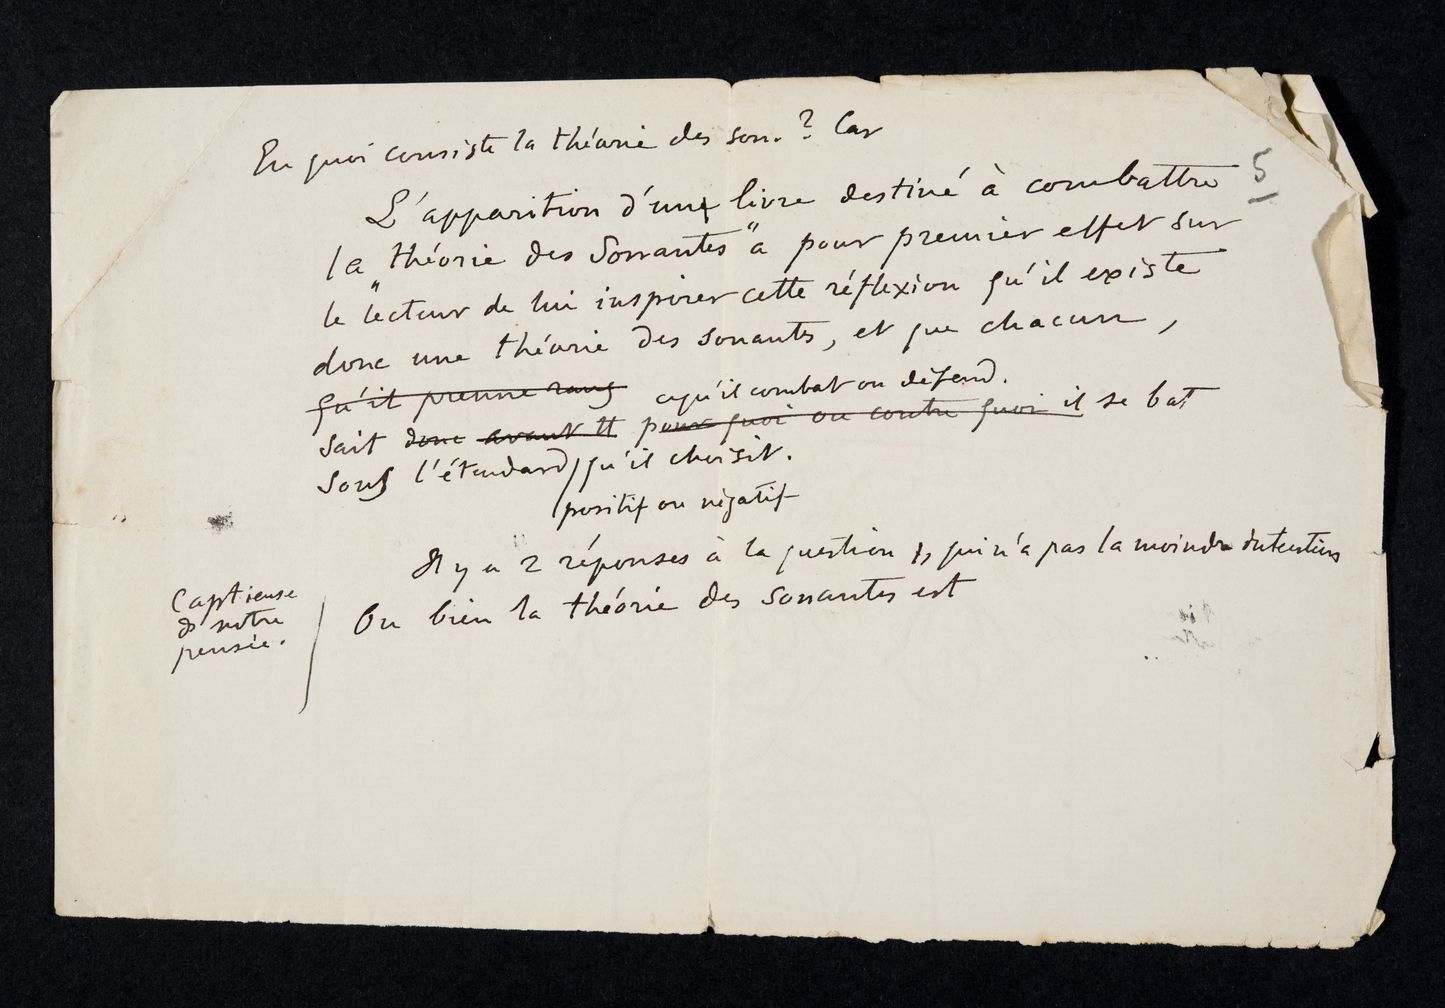 En quoi consiste la théorie des son. ? Car
5
L'apparition d'un livre destiné à combattre
la "théorie des Sonantes" a pour premier effet sur
le lecteur de lui inspirer cette réflexion qu'il existe
donc une théorie des sonantes, et que chacun,
qu'il prenne rang ce qu'il combat ou défend.
sait donc avant tt pour quoi ou contre quoi il se bat
sous l'étendard qu'il choisit.
positif ou négatif
Il y a 2 réponses à la question qui n'a pas la moindre intention
Captieuse
ds notre
pensée.
Ou bien la théorie des sonantes est